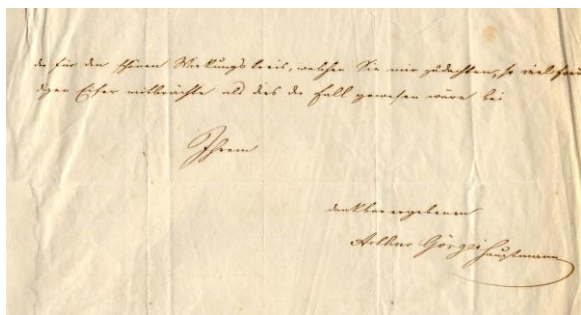 de für den schönen Wirkungskreis, welchen Sie mir zudachten, so viel freu
digen Eifer mitbrächte als dies der Fall gewesen wäre bei
Ihrem
dankbar ergebenen
Arthur Görgei Hauptmann